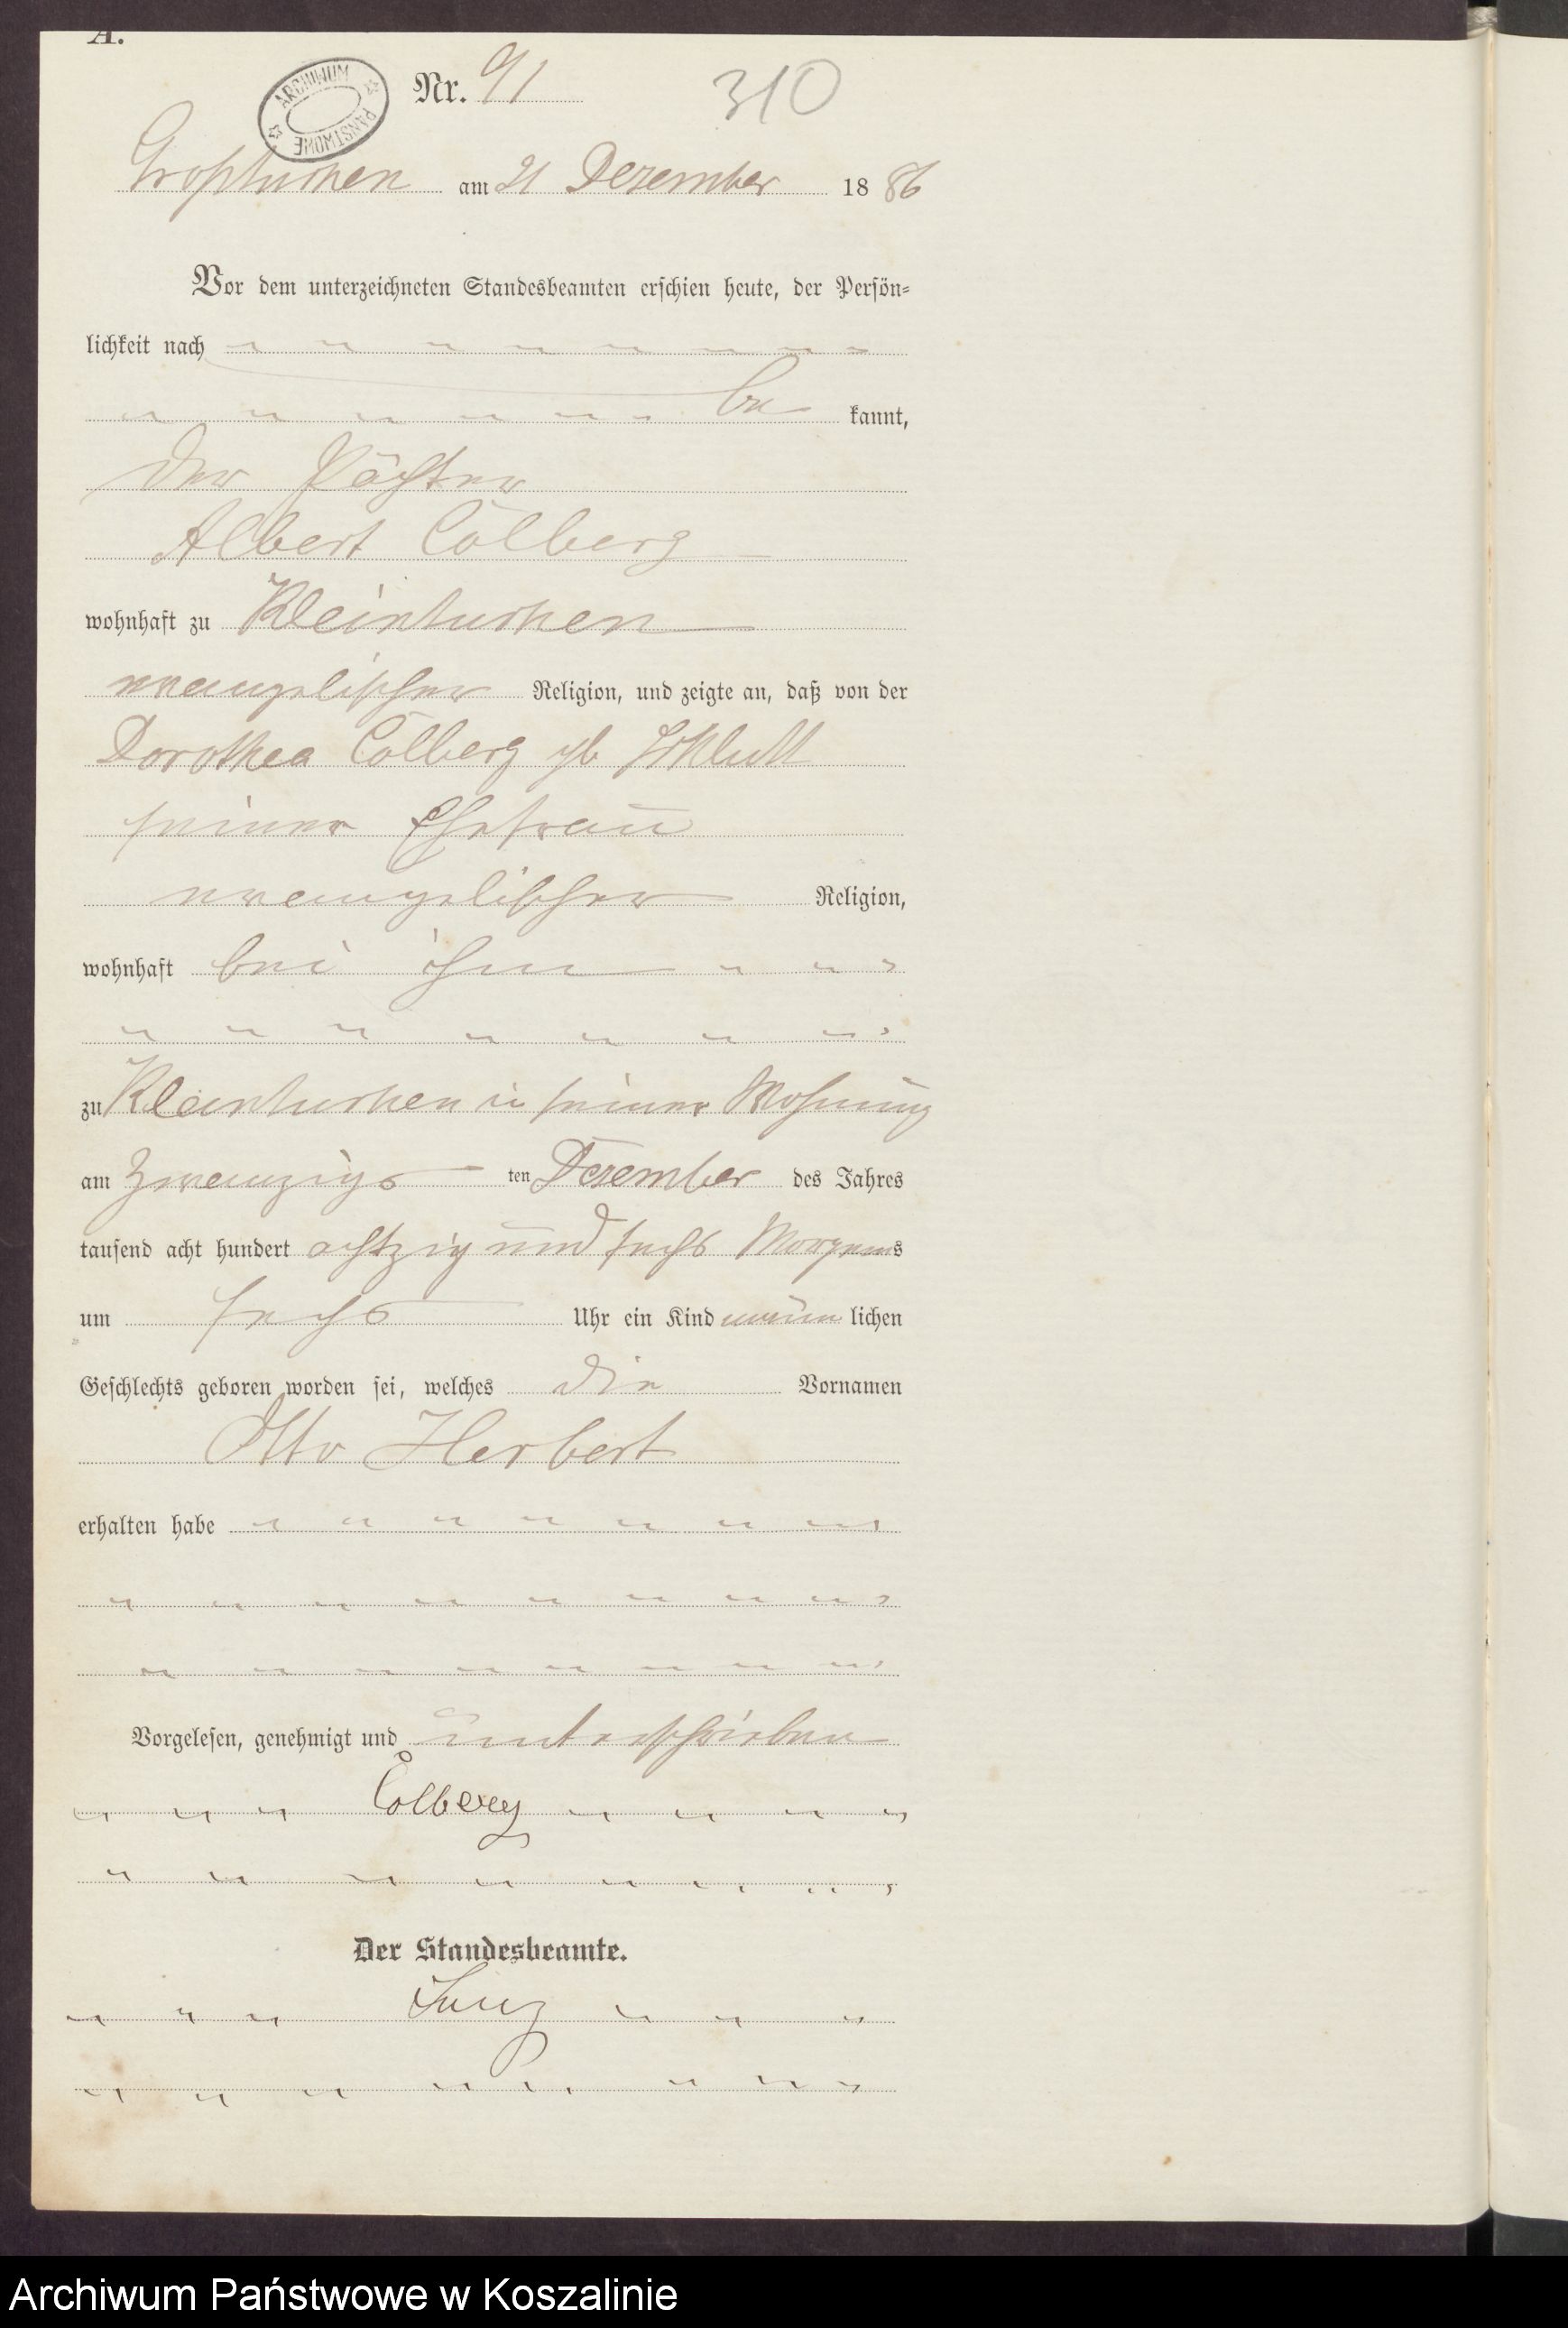 A.
ARCHIWUM PAŃSTWOWE
Nr. 91 310
Großtuchen am 21 Dezember 1886
Vor dem unterzeichneten Standesbeamten erschien heute, der Persön-
lichkeit nach
be kannt,
der Pächter
Albert Cölberg
wohnhaft zu Kleintuchen
evangelischer Religion, und zeigte an, daß von der
Dorothea Cölberg geb
seiner Ehefrau
evangelischer Religion,
wohnhaft bei ihm
zu Kleintuchen in seiner Wohnung
am zwanzigs ten Dezember des Jahres
tausend acht hundert achtzig und sechs Morgens
um sechs Uhr ein Kind männ lichen
Geschlechts geboren worden sei, welches die Vornamen
Otto Herbert
erhalten habe
Vorgelesen, genehmigt und unterschrieben
Cölberg
Der Standesbeamte.
Archiwum Państwowe w Koszalinie